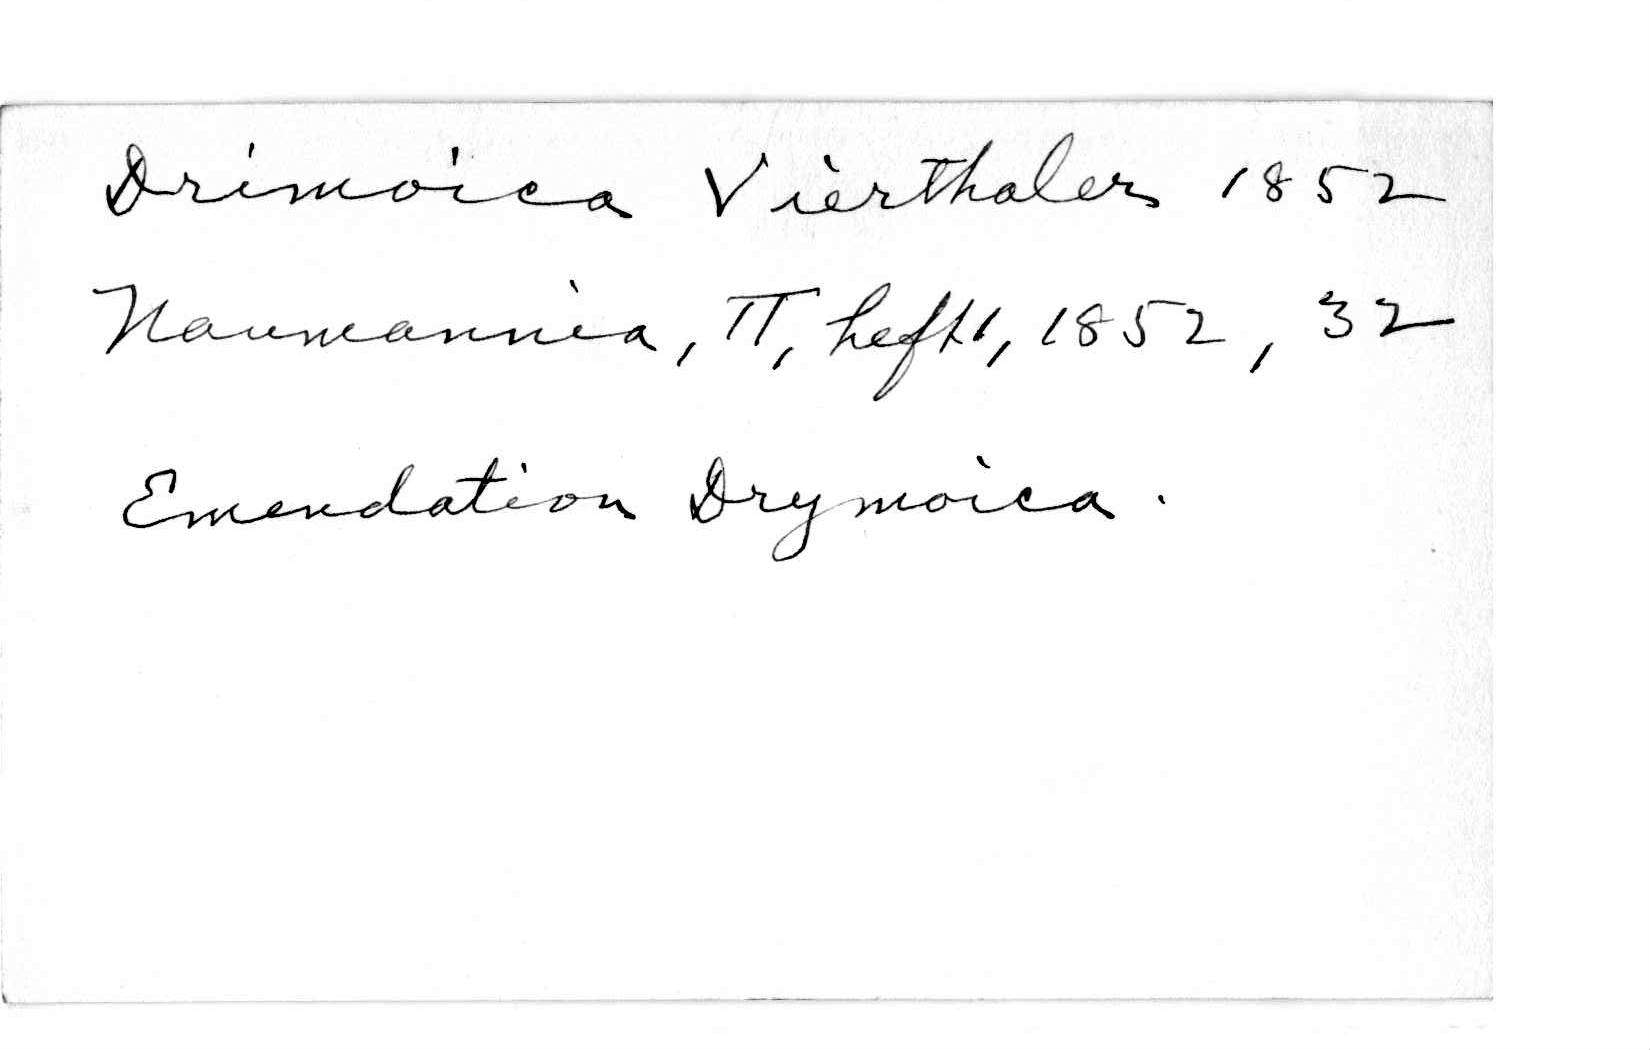 Drimoica Vierthaler 1852
Naumannia, II, heft 1, 1852, 32
Emendation Drymoica.